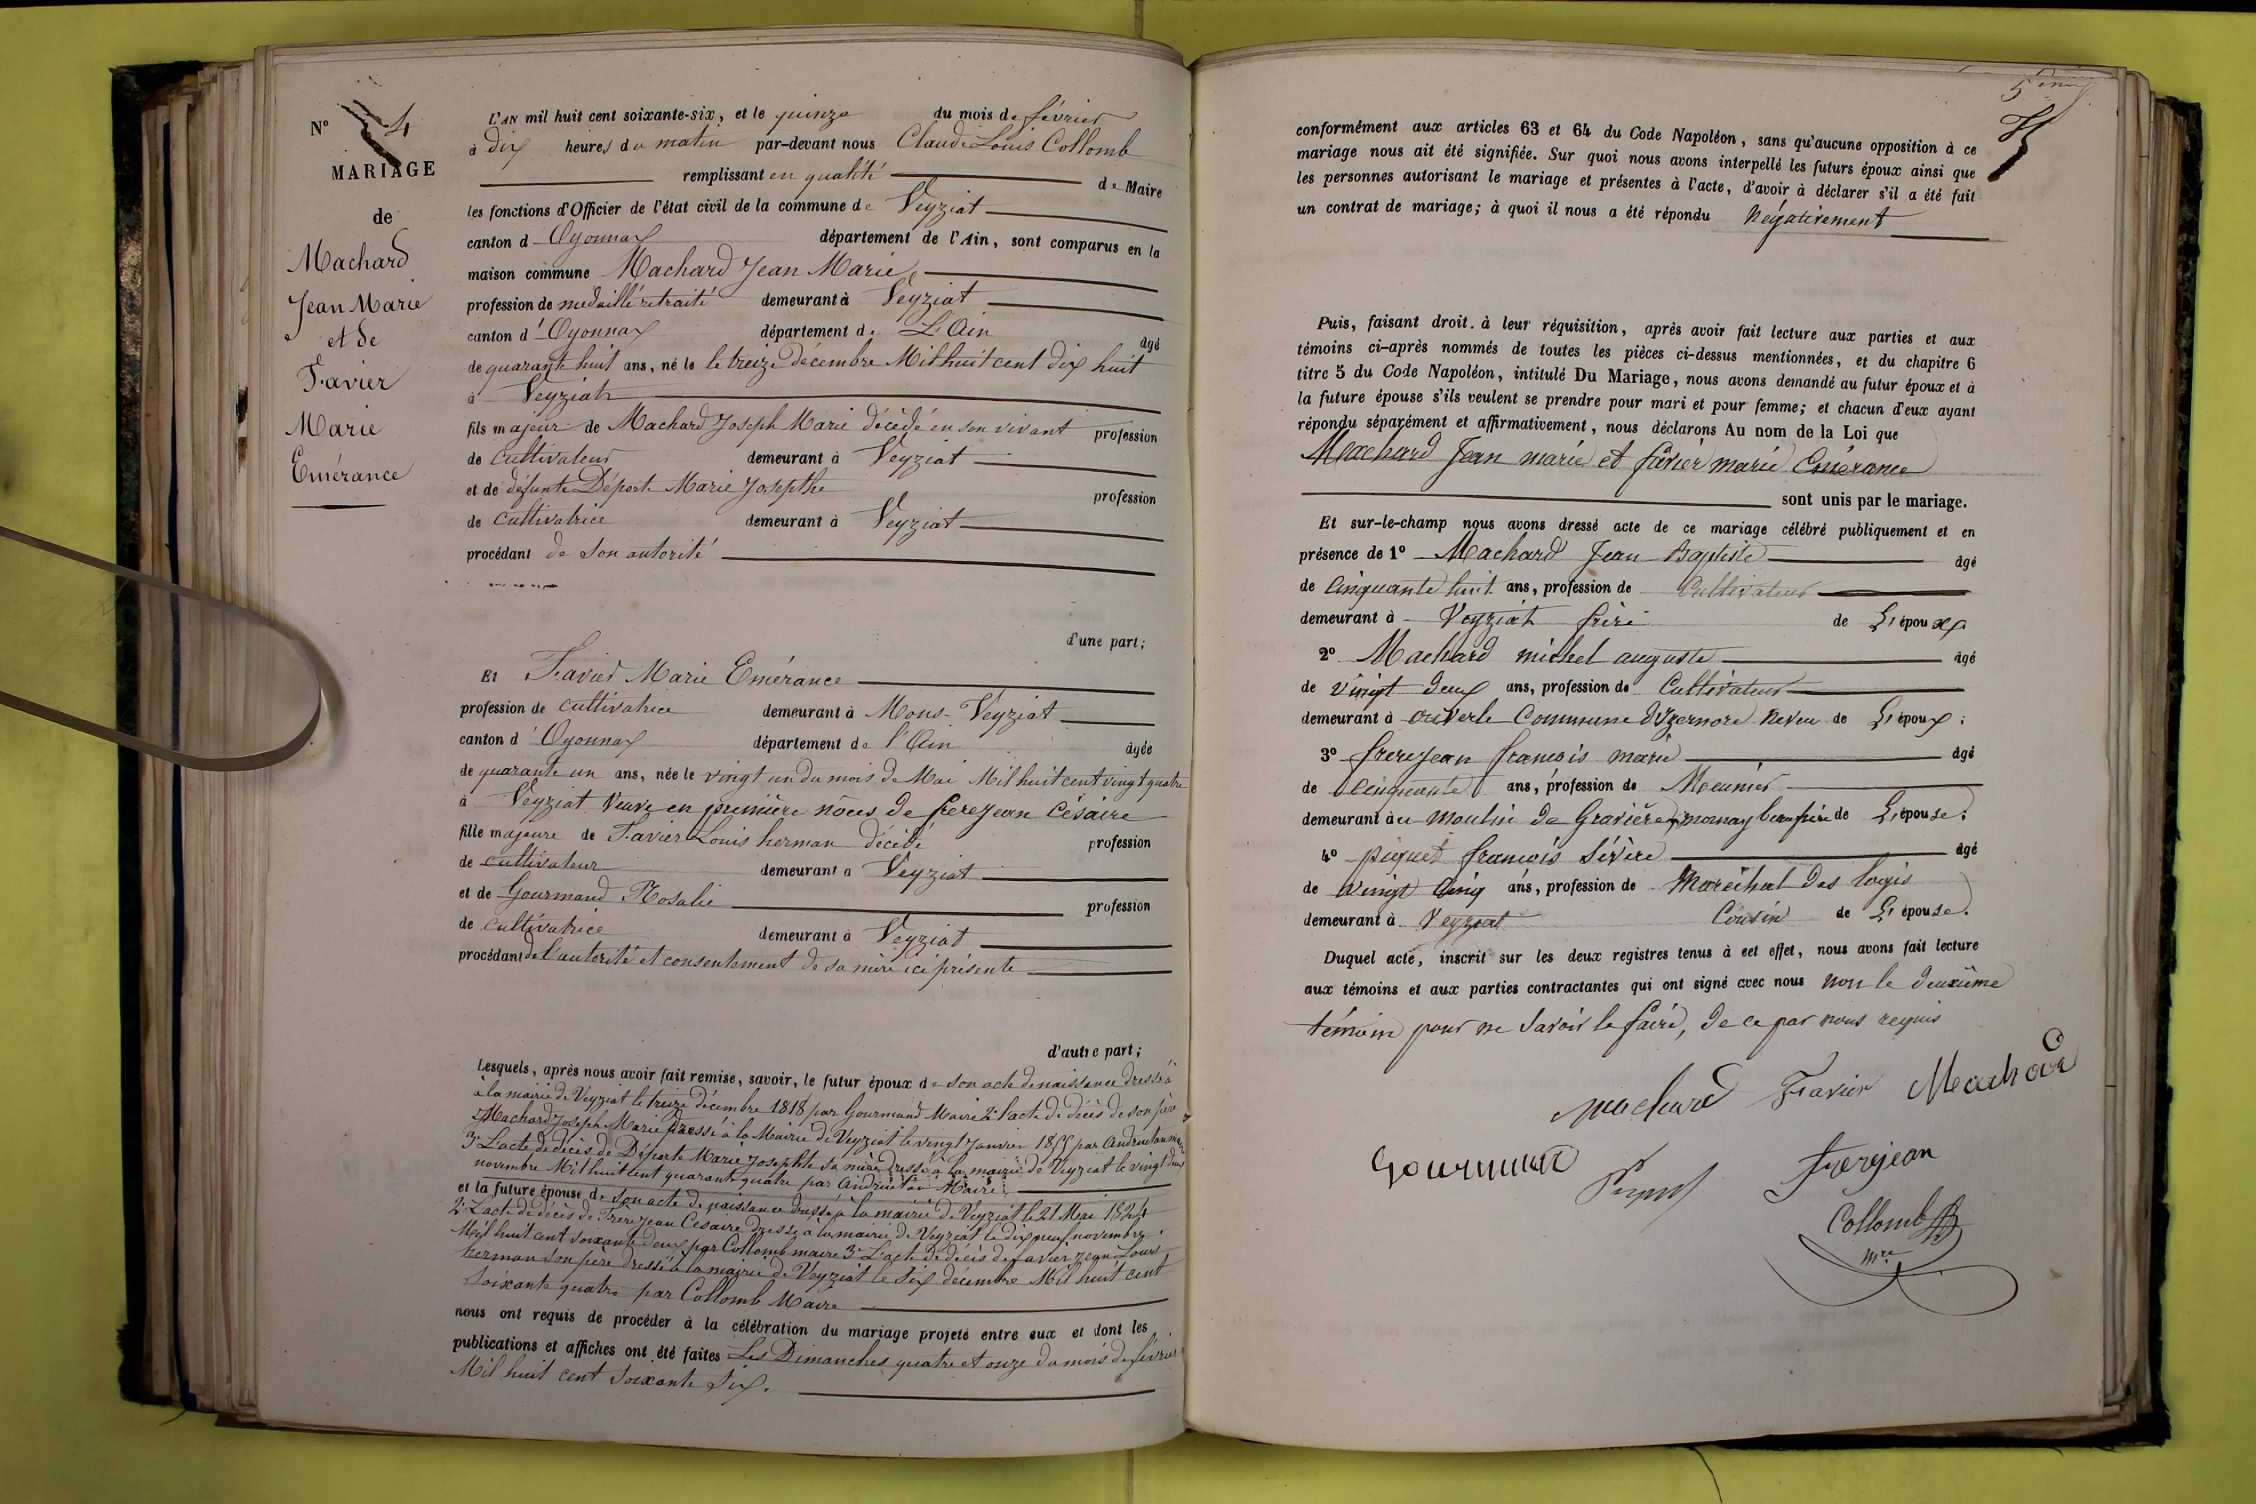 N° 4
MARIAGE
de
Machard
Jean Marie
et de
Favier
Marie
Emérance
L'AN mil huit cent soixante-six, et le quinze du mois de février
à dix heures du matin par-devant nous Claude Louis Collomb
remplissant en qualité de Maire
les fonctions d'Officier de l'état civil de la commune de Veyziat
canton d'Oyonnax département de l'Ain, sont comparus en la
maison commune Machard Jean Marie
profession de medaillé retraité demeurant à Veyziat
canton d'Oyonnax département de L'Ain âgé
de quarante huit ans, né le le treize décembre Mil huit cent dix huit
à Veyziat
fils majeur de Machard Joseph Marie décédé en son vivant profession
de cultivateur demeurant à Veyziat
et de défunte Déporte Marie Josephte profession
de cultivatrice demeurant à Veyziat
procédant de son autorité
d'une part;
Et Favier Marie Emérance
profession de cultivatrice demeurant à Mons-Veyziat
canton d'Oyonnax département de l'Ain âgée
de quarante un ans, née le vingt un du mois de Mai Mil huit cent vingt quatre
à Veyziat Veuve en première nôces de frerejean Césaire
fille majeure de Favier Louis herman décédé profession
de cultivateur demeurant à Veyziat
et de Gourmand Rosalie profession
de cultivatrice demeurant à Veyziat
procédant de l'autorité et consentement de sa mère ici présente
d'autre part;
Lesquels, après nous avoir fait remise, savoir, le futur époux de son acte de naissance dressé à
à la mairie de Veyziat le treize décembre 1818 par Gourmand Maire 2° l'acte de décès de son père
Machard Joseph Marie dressé à la Mairie de Veyziat le vingt Janvier 1855 par
3° L'acte de décès de Déporte Marie Josephte sa mère dressé à la mairie de Veyziat le vingt deux
novembre Mil huit cent quarante quatre par Maire
et la future épouse de son acte de naissance dressé à la mairie de Veyziat le 21 Mai 1824
2° L'acte de décès de Frerejean Césaire dressé à la mairie de Veyziat le dix neuf novembre
Mil huit cent soixante deux par Collomb maire 3° L'acte de décès de favier Jean Louis
herman son père dressé à la mairie de Veyziat le six décembre Mil huit cent
soixante quatre par Collomb Maire
nous ont requis de procéder à la célébration du mariage projeté entre eux et dont les
publications et affiches ont été faites Les Dimanches quatre et onze du mois de février
Mil huit cent soixante six.
5
conformément aux articles 63 et 64 du Code Napoléon, sans qu'aucune opposition à ce
mariage nous ait été signifiée. Sur quoi nous avons interpellé les futurs époux ainsi que
les personnes autorisant le mariage et présentes à l'acte, d'avoir à déclarer s'il a été fait
un contrat de mariage; à quoi il nous a été répondu négativement
Puis, faisant droit à leur réquisition, après avoir fait lecture aux parties et aux
témoins ci-après nommés de toutes les pièces ci-dessus mentionnées, et du chapitre 6
titre 5 du Code Napoléon, intitulé Du Mariage, nous avons demandé au futur époux et à
la future épouse s'ils veulent se prendre pour mari et pour femme; et chacun d'eux ayant
répondu séparément et affirmativement, nous déclarons Au nom de la Loi que
Machard Jean marie et favier marie Emérance
sont unis par le mariage.
Et sur-le-champ nous avons dressé acte de ce mariage célébré publiquement et en
présence de 1° Machard Jean Baptiste âgé
de Cinquante huit ans, profession de Cultivateur
demeurant à Veyziat frère de L'époux
2° Machard michel auguste âgé
de vingt deux ans, profession de Cultivateur
demeurant à Commune d'Izernore Neveu de L'époux;
3° frerejean françois marie âgé
de Cinquante ans, profession de Meunier
demeurant au moulin de Gravière, mornay beau frère de L'épouse.
4° piquet françois Sévère âgé
de vingt Cinq ans, profession de Maréchal des logis
demeurant à Veyziat Cousin de L'épouse.
Duquel acte, inscrit sur les deux registres tenus à cet effet, nous avons fait lecture
aux témoins et aux parties contractantes qui ont signé avec nous non le deuxième
témoin pour ne savoir le faire, de ce par nous requis
Machard Favier Machard
Gourmand Frerejean
Collomb
mre